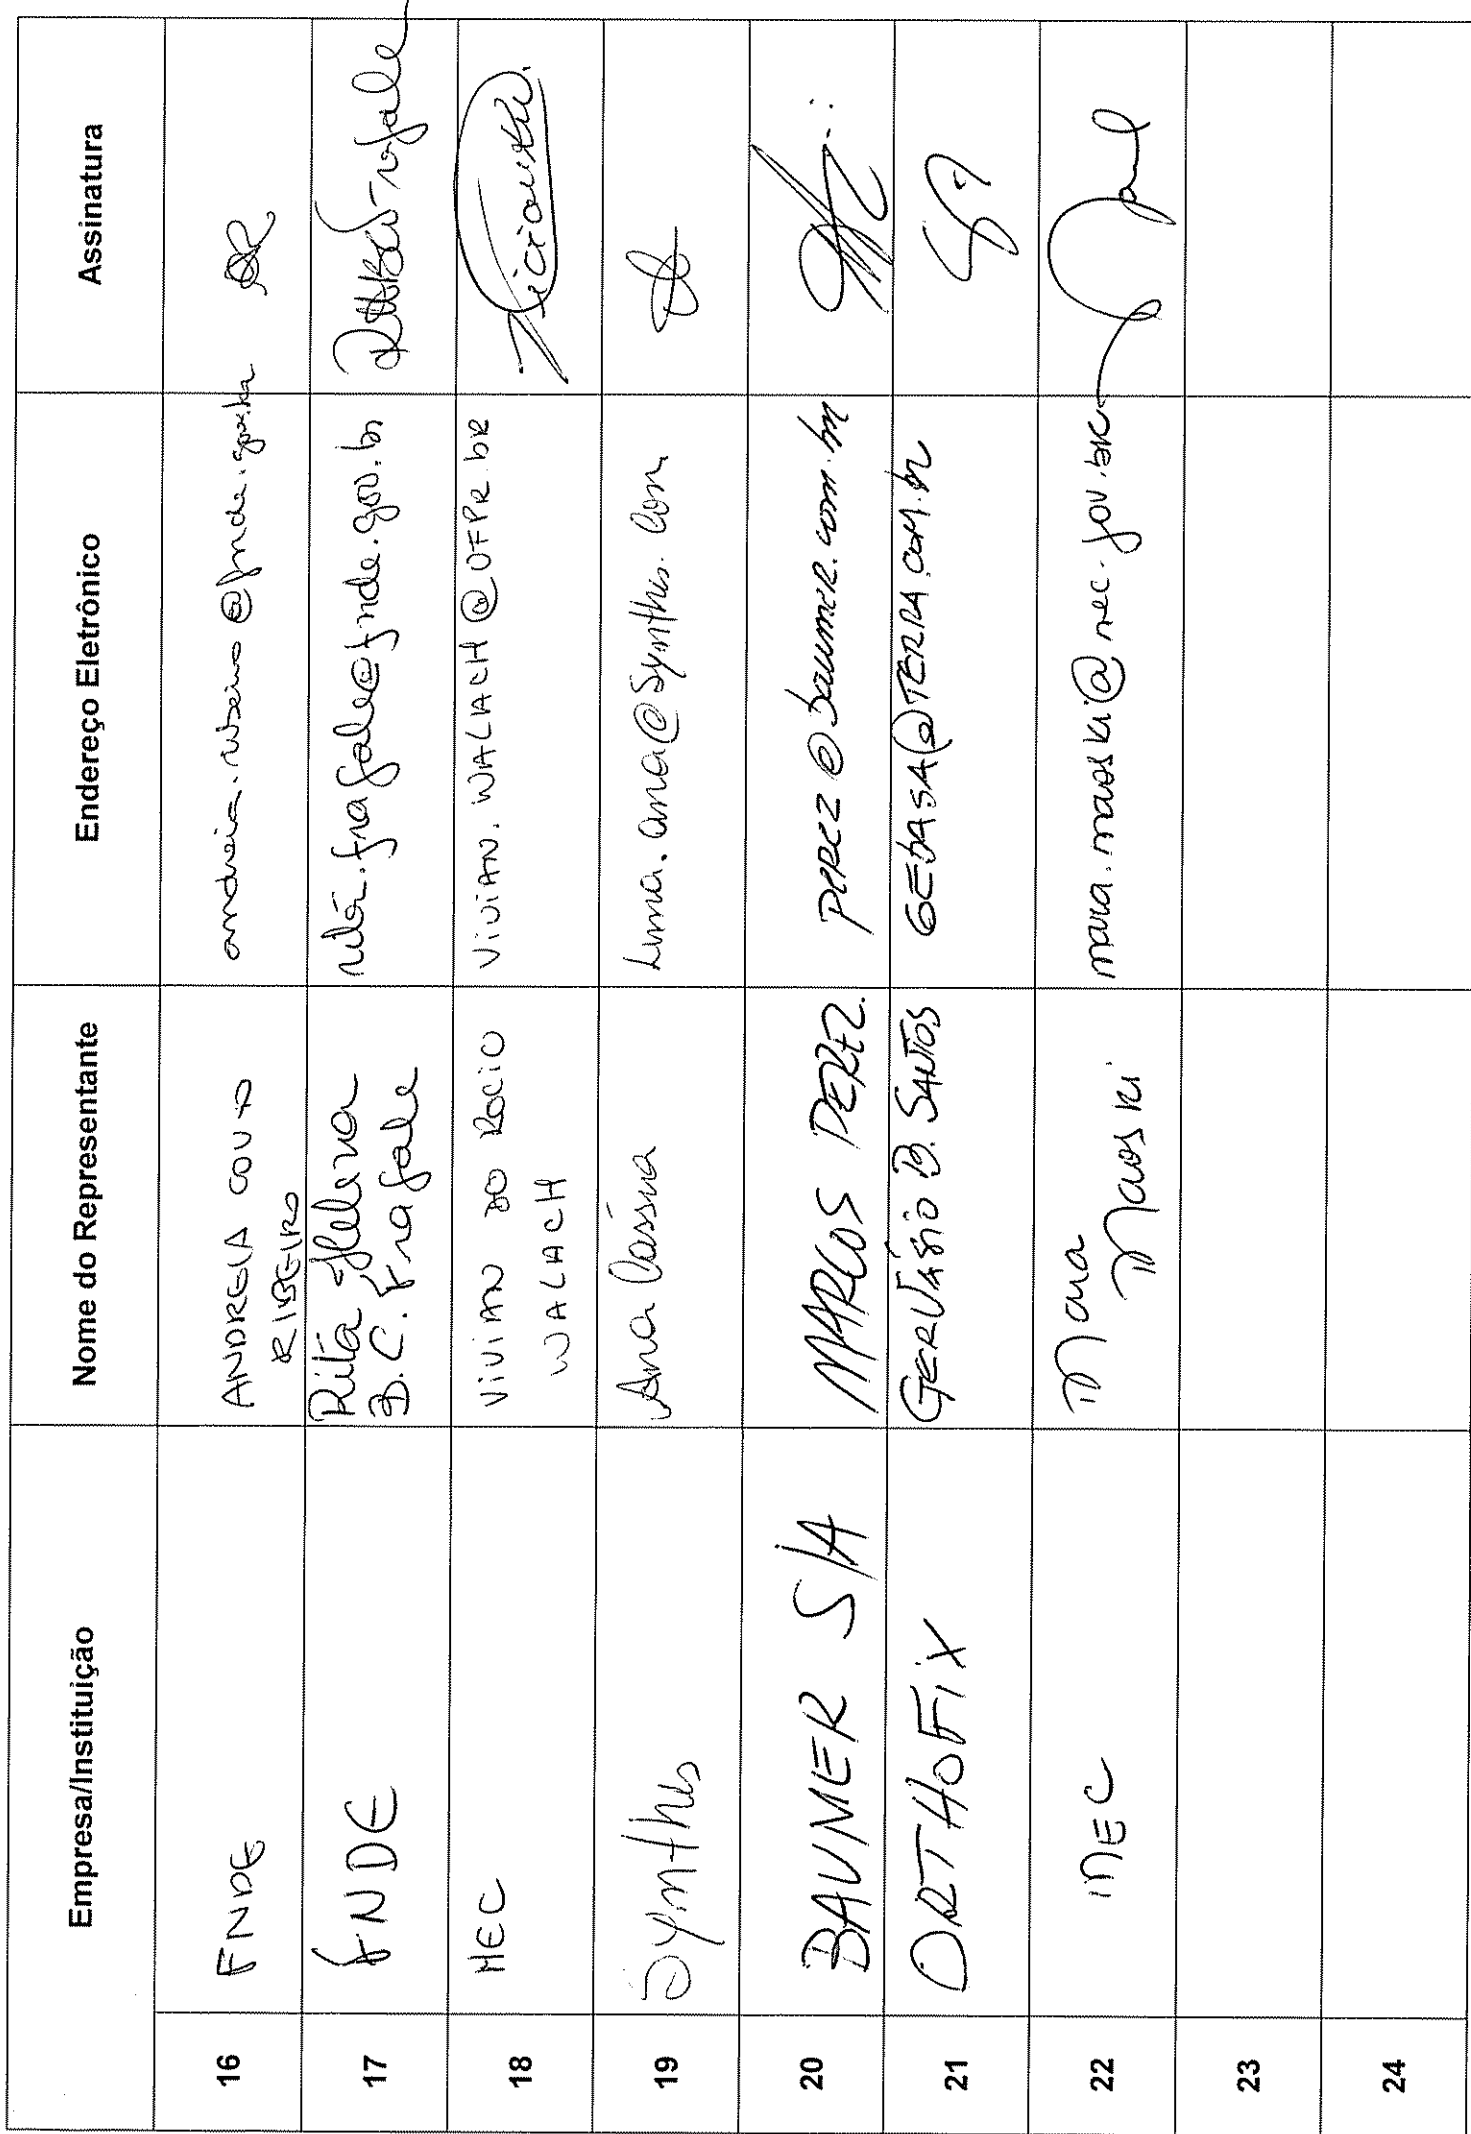 Empresa/Instituição Nome do Representante Endereço Eletrônico Assinatura
16 FNDE ANDREIA COUTO andreia.ribeiro@fnde.gov.br
RIBEIRO
17 FNDE Rita Helena rita.frafale@fnde.gov.br
B.C. Frafale
18 MEC ViViAN DO ROCIO ViViAN.WALACH@UFPR.bR
WALACH
19 Synthes Ana Cássia Lima.ana@Synthes.Com
20 BAUMER S/A MARCOS PEREZ. PEREZ@baumer.com.br
21 ORTHOFiX GERVÁSiO B. SANTOS GEBASA@TERRA.COM.br
22 MEC Mara mara.maoski@mec.gov.br
Maoski
23
24